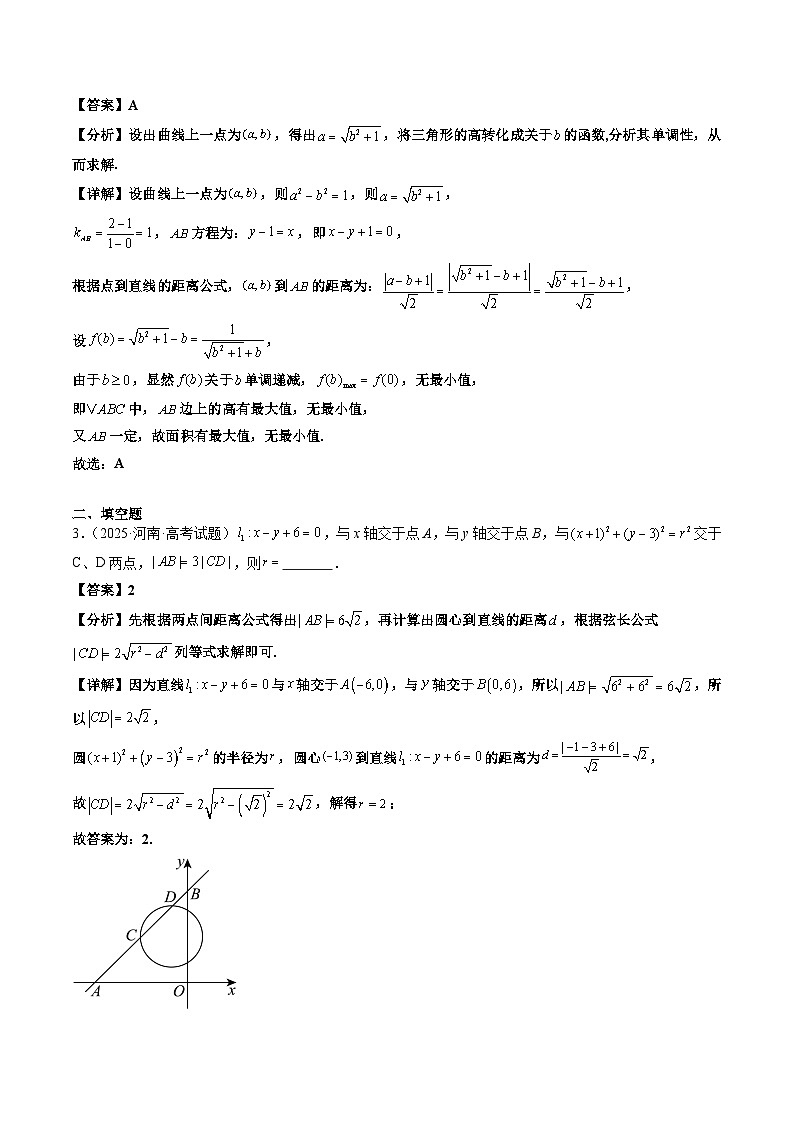 【答案】A
【分析】设出曲线上一点为(a,b)，得出a=√(b²+1)，将三角形的高转化成关于b的函数,分析其单调性，从
而求解.
【详解】设曲线上一点为(a,b)，则a²−b²=1，则a=√(b²+1)，
k_AB=(2−1)/(1−0)=1，AB方程为：y−1=x，即x−y+1=0，
根据点到直线的距离公式，(a,b)到AB的距离为：|a−b+1|/√2=|√(b²+1)−b+1|/√2=(√(b²+1)−b+1)/√2，
设f(b)=√(b²+1)−b=1/(√(b²+1)+b)，
由于b≥0，显然f(b)关于b单调递减，f(b)_max=f(0)，无最小值，
即∨ABC中，AB边上的高有最大值，无最小值，
又AB一定，故面积有最大值，无最小值.
故选：A
二、填空题
3.（2025·河南·高考试题）l₁:x−y+6=0，与x轴交于点A，与y轴交于点B，与(x+1)²+(y−3)²=r²交于
C、D两点，|AB|=3|CD|，则r=______．
【答案】2
【分析】先根据两点间距离公式得出|AB|=6√2，再计算出圆心到直线的距离d，根据弦长公式
|CD|=2√(r²−d²)列等式求解即可.
【详解】因为直线l₁:x−y+6=0与x轴交于A(−6,0)，与y轴交于B(0,6)，所以|AB|=√(6²+6²)=6√2，所
以|CD|=2√2，
圆(x+1)²+(y−3)²=r²的半径为r，圆心(−1,3)到直线l₁:x−y+6=0的距离为d=|−1−3+6|/√2=√2，
故|CD|=2√(r²−d²)=2√(r²−(√2)²)=2√2，解得r=2；
故答案为：2.
y
D B
C
A O x